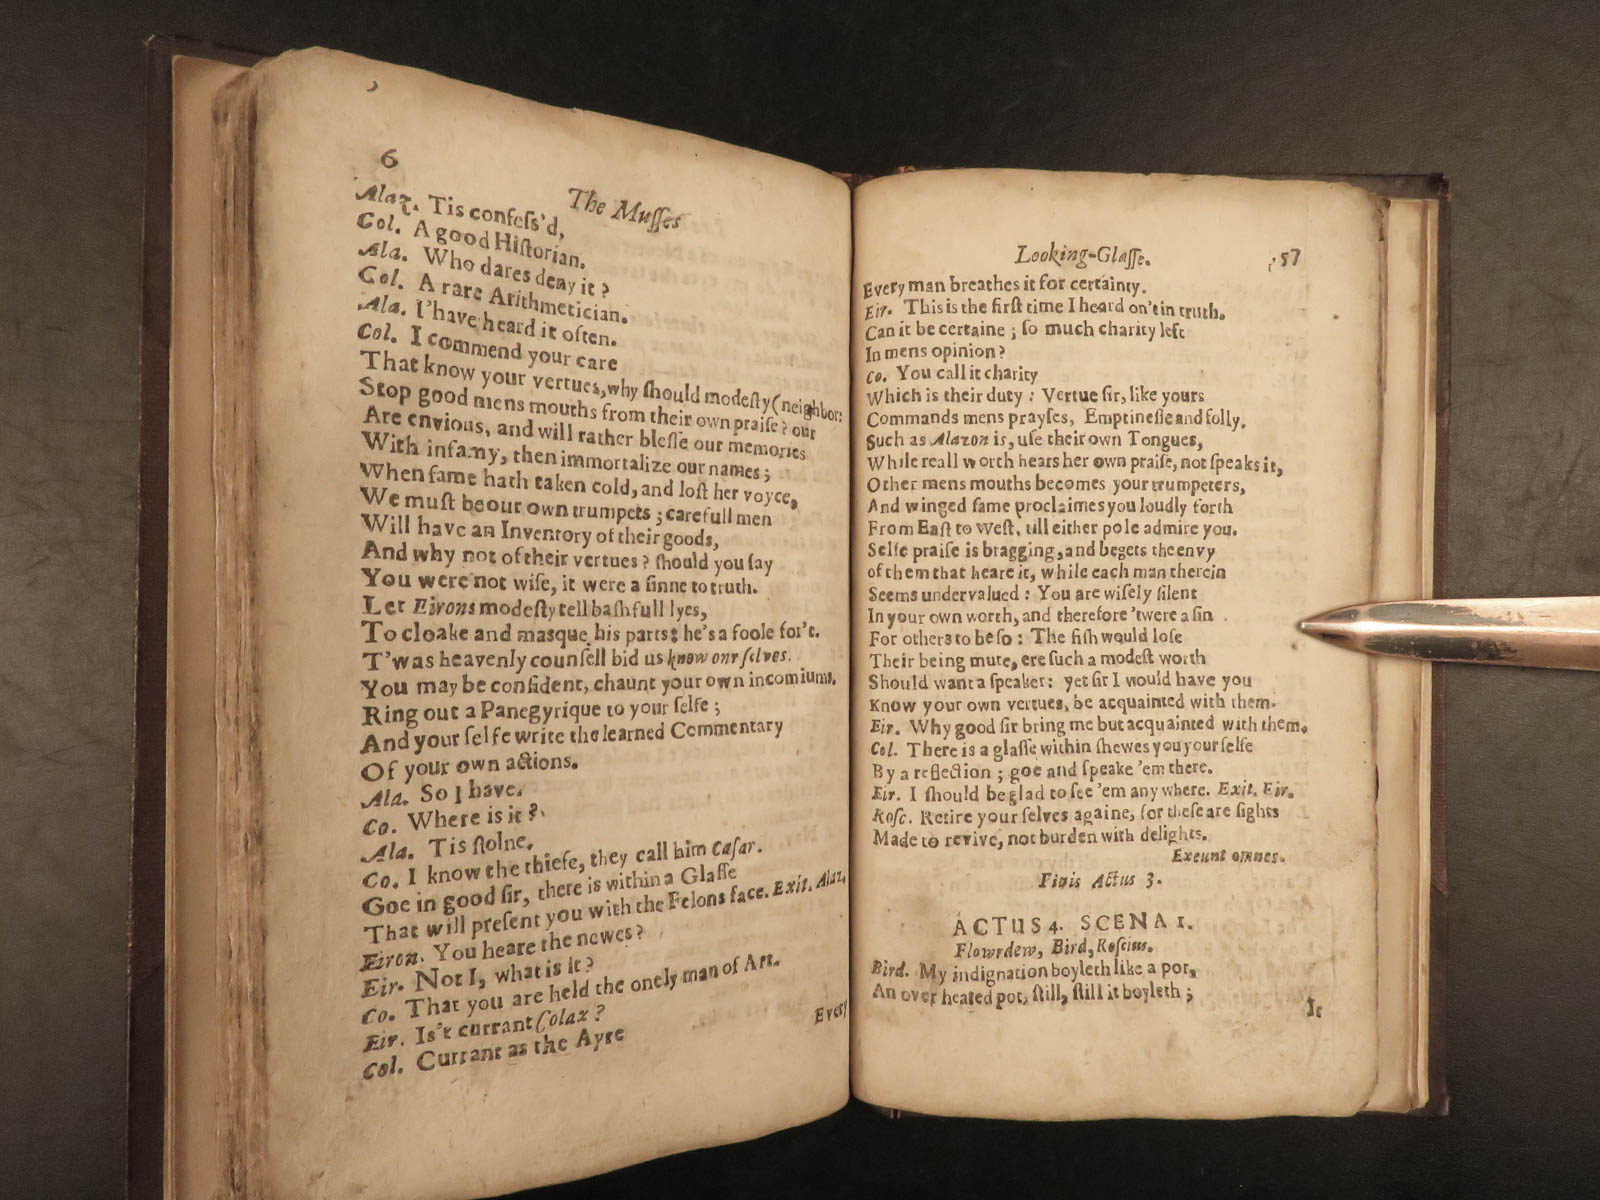 6
The Muſſes
Alaz. Tis confeſs'd,
Col. A good Hiſtorian.
Ala. Who dares deny it ?
Col. A rare Arithmetician.
Ala. I'have heard it often.
Col. I commend your care
That know your vertues, why ſhould modeſty (neighbor:
Stop good mens mouths from their own praiſe ? our
Are envious, and will rather bleſſe our memories
With infamy, then immortalize our names ;
When fame hath taken cold, and loſt her voyce,
We muſt be our own trumpets ; carefull men
Will have an Inventory of their goods,
And why not of their vertues ? ſhould you ſay
You were not wiſe, it were a ſinne to truth.
Let Eirons modeſty tell baſhfull lyes,
To cloake and masque his parts: he's a foole for't.
T'was heavenly counſell bid us know our ſelves.
You may be confident, chaunt your own incomiums,
Ring out a Panegyrique to your ſelfe ;
And your ſelfe write the learned Commentary
Of your own actions.
Ala. So I have.
Co. Where is it ?
Ala. Tis ſtolne.
Co. I know the thiefe, they call him Cæſar.
Goe in good ſir, there is within a Glaſſe
That will preſent you with the Felons face. Exit. Alaz.
Eiron. You heare the newes ?
Eir. Not I, what is it ?
Co. That you are held the onely man of Art.
Eir. Is't currant Colax ?
Col. Currant as the Ayre
Every
Looking-Glaſſe.
57
Every man breathes it for certainty.
Eir. This is the firſt time I heard on't in truth.
Can it be certaine ; ſo much charity left
In mens opinion ?
Co. You call it charity
Which is their duty : Vertue ſir, like yours
Commands mens prayſes, Emptineſſe and folly,
Such as Alazon is, uſe their own Tongues,
While reall worth hears her own praiſe, not ſpeaks it,
Other mens mouths becomes your trumpeters,
And winged fame proclaimes you loudly forth
From Eaſt to Weſt, till either pole admire you.
Selfe praiſe is bragging, and begets the envy
of them that heare it, while each man therein
Seems undervalued : You are wiſely ſilent
In your own worth, and therefore 'twere a ſin
For others to be ſo : The fiſh would loſe
Their being mute, ere ſuch a modeſt worth
Should want a ſpeaker : yet ſir I would have you
Know your own vertues, be acquainted with them.
Eir. Why good ſir bring me but acquainted with them.
Col. There is a glaſſe within ſhewes you your ſelfe
By a reflection ; goe and ſpeake 'em there.
Eir. I ſhould be glad to ſee 'em any where. Exit. Eir.
Roſc. Retire your ſelves againe, for theſe are ſights
Made to revive, not burden with delights.
Exeunt omnes.
Finis Actus 3.
ACTUS 4. SCENA 1.
Flowrdew, Bird, Roſcius.
Bird. My indignation boyleth like a pot,
An over heated pot, ſtill, ſtill it boyleth ;
It